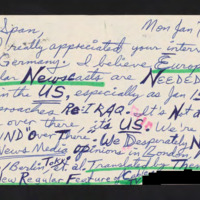 Span, Mon Jan
I really appreciated your interv
Germany. I believe Europ
lar Newscasts are NEEDED
in the US, especially as Jan 15
approaches Re: IRAQ. It's Not a
over there, its US. We're
UND' Over There. We Desperately N
News Media opinions in London,
/Berlin, et. al Translated by The
New Regular Feature